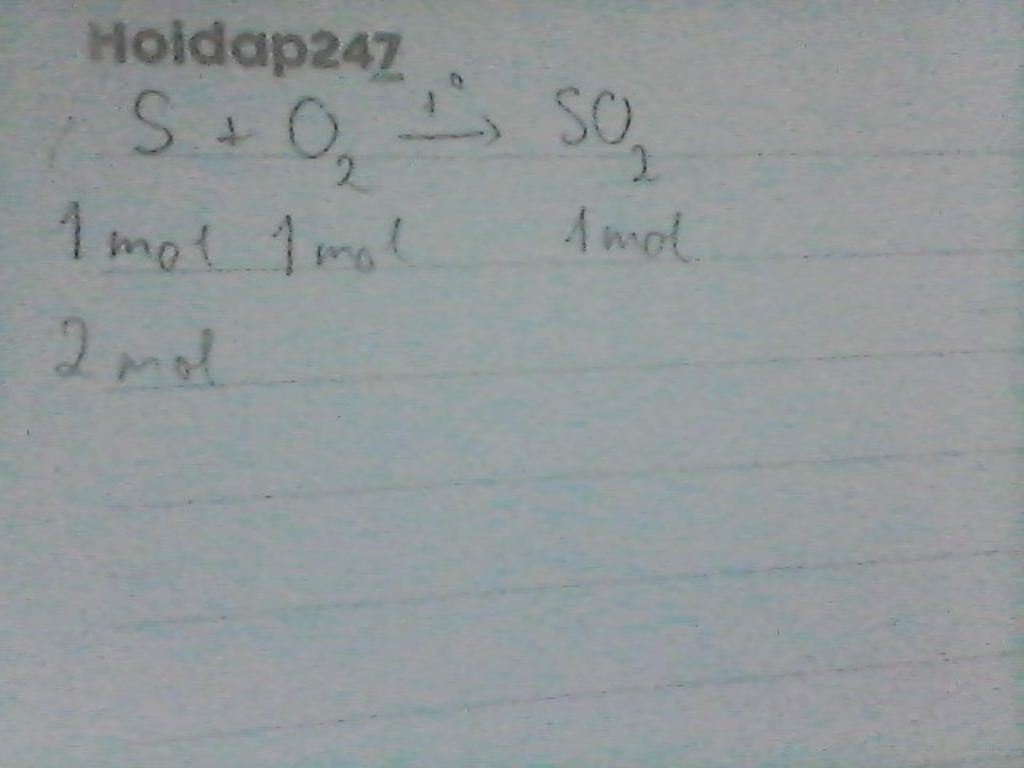 Hoidap247
S + O₂ —t°→ SO₂
1 mol 1 mol 1 mol
2 mol